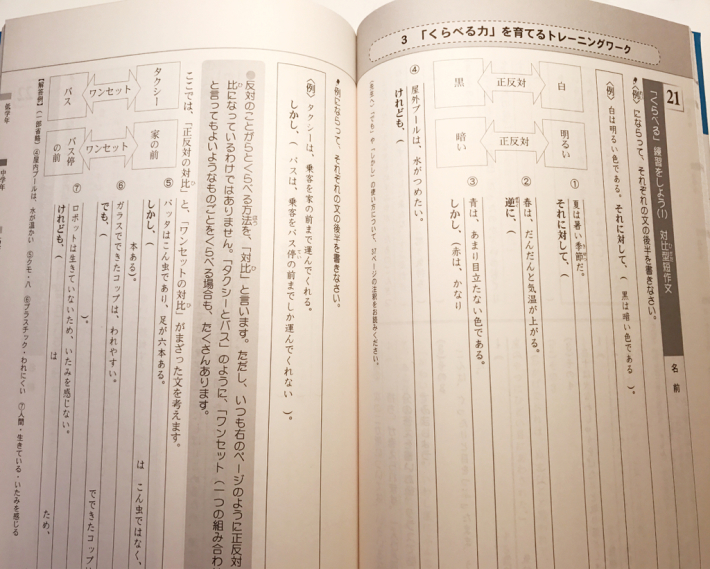 3 「くらべる力」を育てるトレーニングワーク
21
「くらべる」練習をしよう(1) 対比型短作文
名前
★〈例〉にならって、それぞれの文の後半を書きなさい。
〈例〉 白は明るい色である。それに対して、( 黒は暗い色である )。
白
正反対
黒
明るい
正反対
暗い
① 夏は暑い季節だ。
それに対して、(
② 春は、だんだんと気温が上がる。
逆に、(
③ 青は、あまり目立たない色である。
しかし、(赤は、かなり
④ 屋外プールは、水がつめたい。
けれども、(
★例にならって、それぞれの文の後半を書きなさい。
〈例〉 タクシーは、乗客を家の前まで運んでくれる。
しかし、( バスは、乗客をバス停の前までしか運んでくれない )。
反対のことがらとくらべる方法を、「対比」と言います。ただし、いつも右のページのように正反対
比になっているわけではありません。「タクシーとバス」のように、「ワンセット(一つの組み合わ
と言ってもよいようなものごとをくらべる場合も、たくさんあります。
ここでは、「正反対の対比」と、「ワンセットの対比」がまざった文を考えます。
タクシー
ワンセット
バス
家の前
ワンセット
バス停の前
⑤ バッタはこん虫であり、足が六本ある。
しかし、( は こん虫ではなく、
本ある)。
⑥ ガラスでできたコップは、われやすい。
でも、( でできたコップは
)。
⑦ ロボットは生きていないため、いたみを感じない。
けれども、( は ため、
【解答例】(一部省略) ④屋内プールは、水が温かい ⑤クモ・八 ⑥プラスチック・われにくい ⑦人間・生きている・いたみを感じる
低学年
中学年